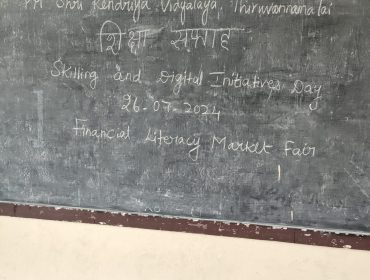 PM Shri Kendriya Vidyalaya, Thiruvannamalai
शिक्षा सप्ताह
Skilling and Digital Initiatives Day
26-07-2024
Financial Literacy Market Fair